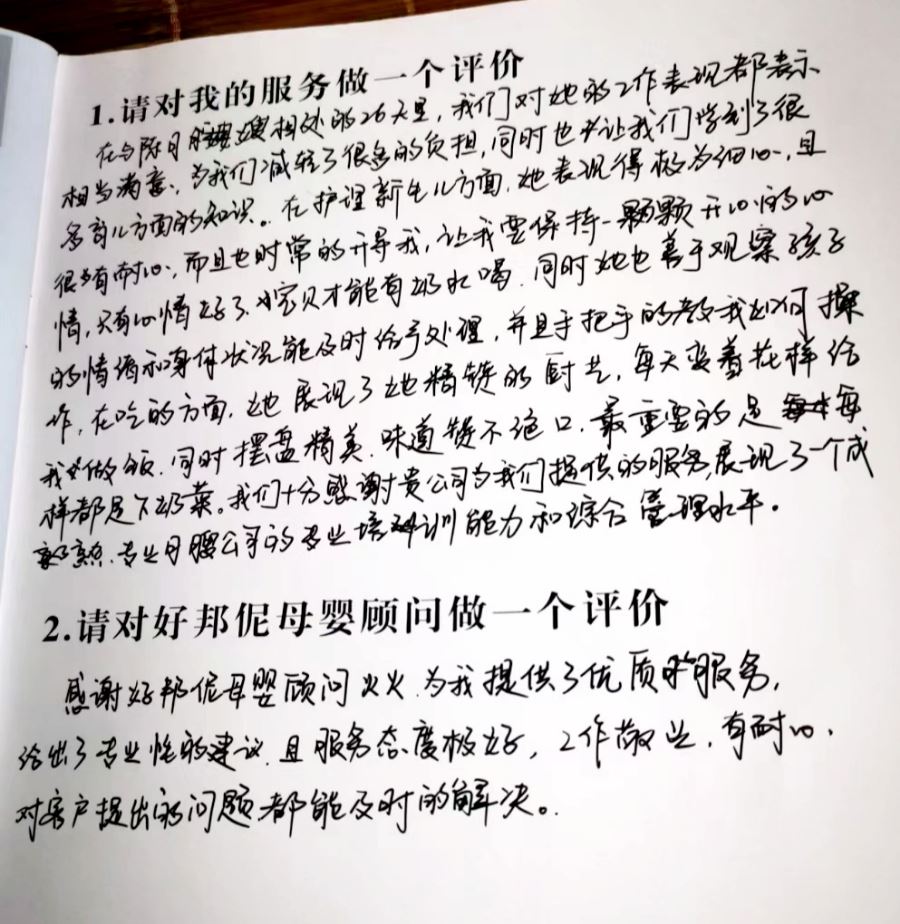 1.请对我的服务做一个评价
在与陈月嫂相处的26天里，我们对她的工作表现都表示
相当满意，为我们减轻了很多的负担，同时也让我们学到了很
多育儿方面的知识。在护理新生儿方面，她表现得极为细心，且
很有耐心，而且也时常的开导我，让我要保持一颗颗开心的心
情，只有心情好了、小宝贝才能有奶水喝，同时她也善于观察孩子
的情绪和身体状况能及时给予处理，并且手把手的教我如何操
作，在吃的方面，她展现了她精锭的厨艺，每天变着花样给
我做饭，同时摆盘精美，味道赞不绝口，最重要的是每
样都是下奶菜。我们十分感谢贵公司为我们提供的服务，展现了一个成
熟、专业月嫂公司的专业培训能力和综合管理水平。
2.请对好邦伲母婴顾问做一个评价
感谢好邦伲母婴顾问火火，为我提供了优质的服务，
给出了专业性的建议，且服务态度极好，工作敬业，有耐心，
对客户提出的问题都能及时的解决。